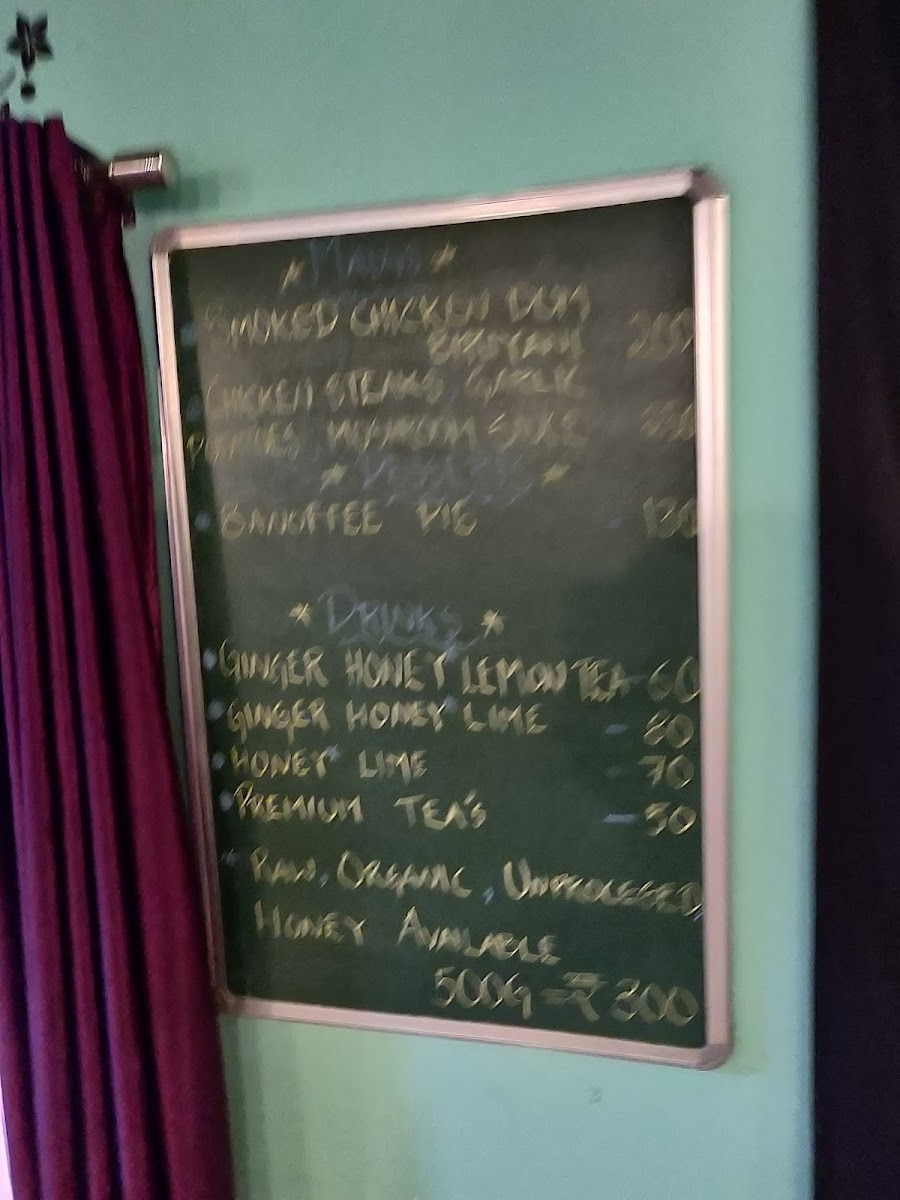 * MAINS *
• SMOKED CHICKEN DUM
BIRIYANI
• CHICKEN STEAKS GARLIC
MUSHROOM SAUCE
• BANOFFEE PIE - 130
* DRINKS *
• GINGER HONEY LEMON TEA - 60
• GINGER HONEY LIME - 80
• HONEY LIME - 70
• PREMIUM TEA'S - 50
* RAW, ORGANIC, UNPROCESSED,
HONEY AVAILABLE
500G = ₹ 300